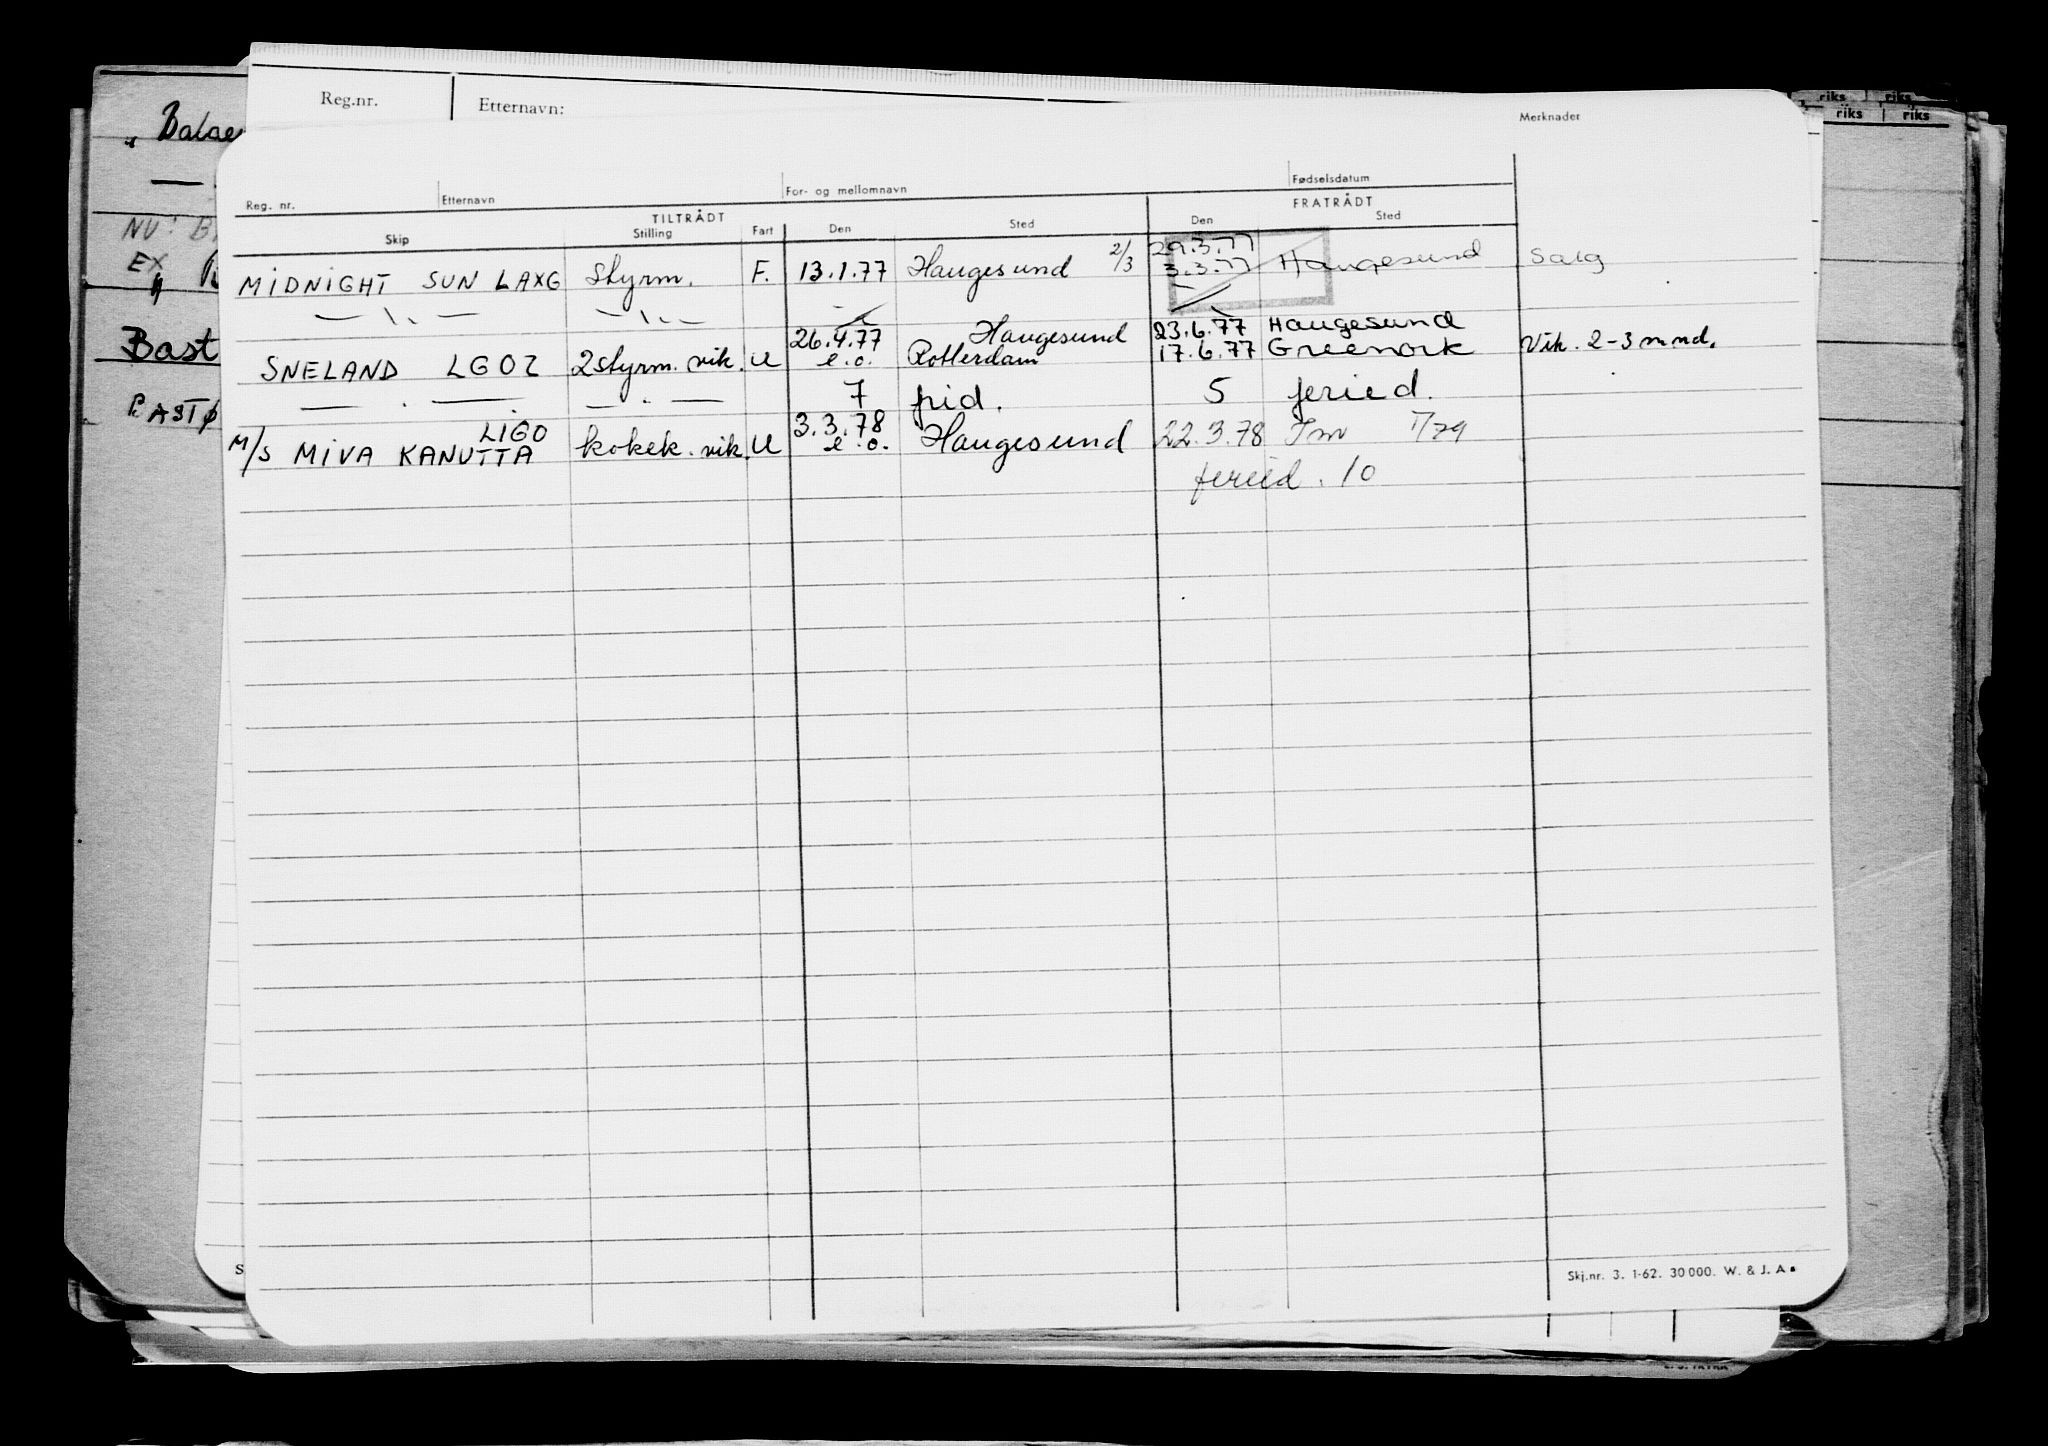 Reg.nr. Etternavn:
riks riks
riks riks
Merknader
Reg. nr. Etternavn For- og mellomnavn Fødselsdatum
TILTRÅDT FRATRÅDT
Skip Stilling Fart Den Sted Den Sted
29.3.77
MIDNIGHT SUN LAXG Styrm. F. 13.1.77 Haugesund 2/3 3.3.77 Haugesund Salg
26.4.77 Haugesund 23.6.77 Haugesund
SNELAND LGOZ 2styrm. vik. U e.o. Rotterdam 17.6.77 Greenock Vik. 2-3 mnd.
7 frid. 5 feried.
LIGO 3.3.78
M/S MIVA KANUTTA kokek. vik. U e.o. Haugesund 22.3.78 Tm 1/79
feried. 10
Balae
NU: B
EX
Bast
PASTØ
Skj.nr. 3. 1-62. 30000. W. & J. A.